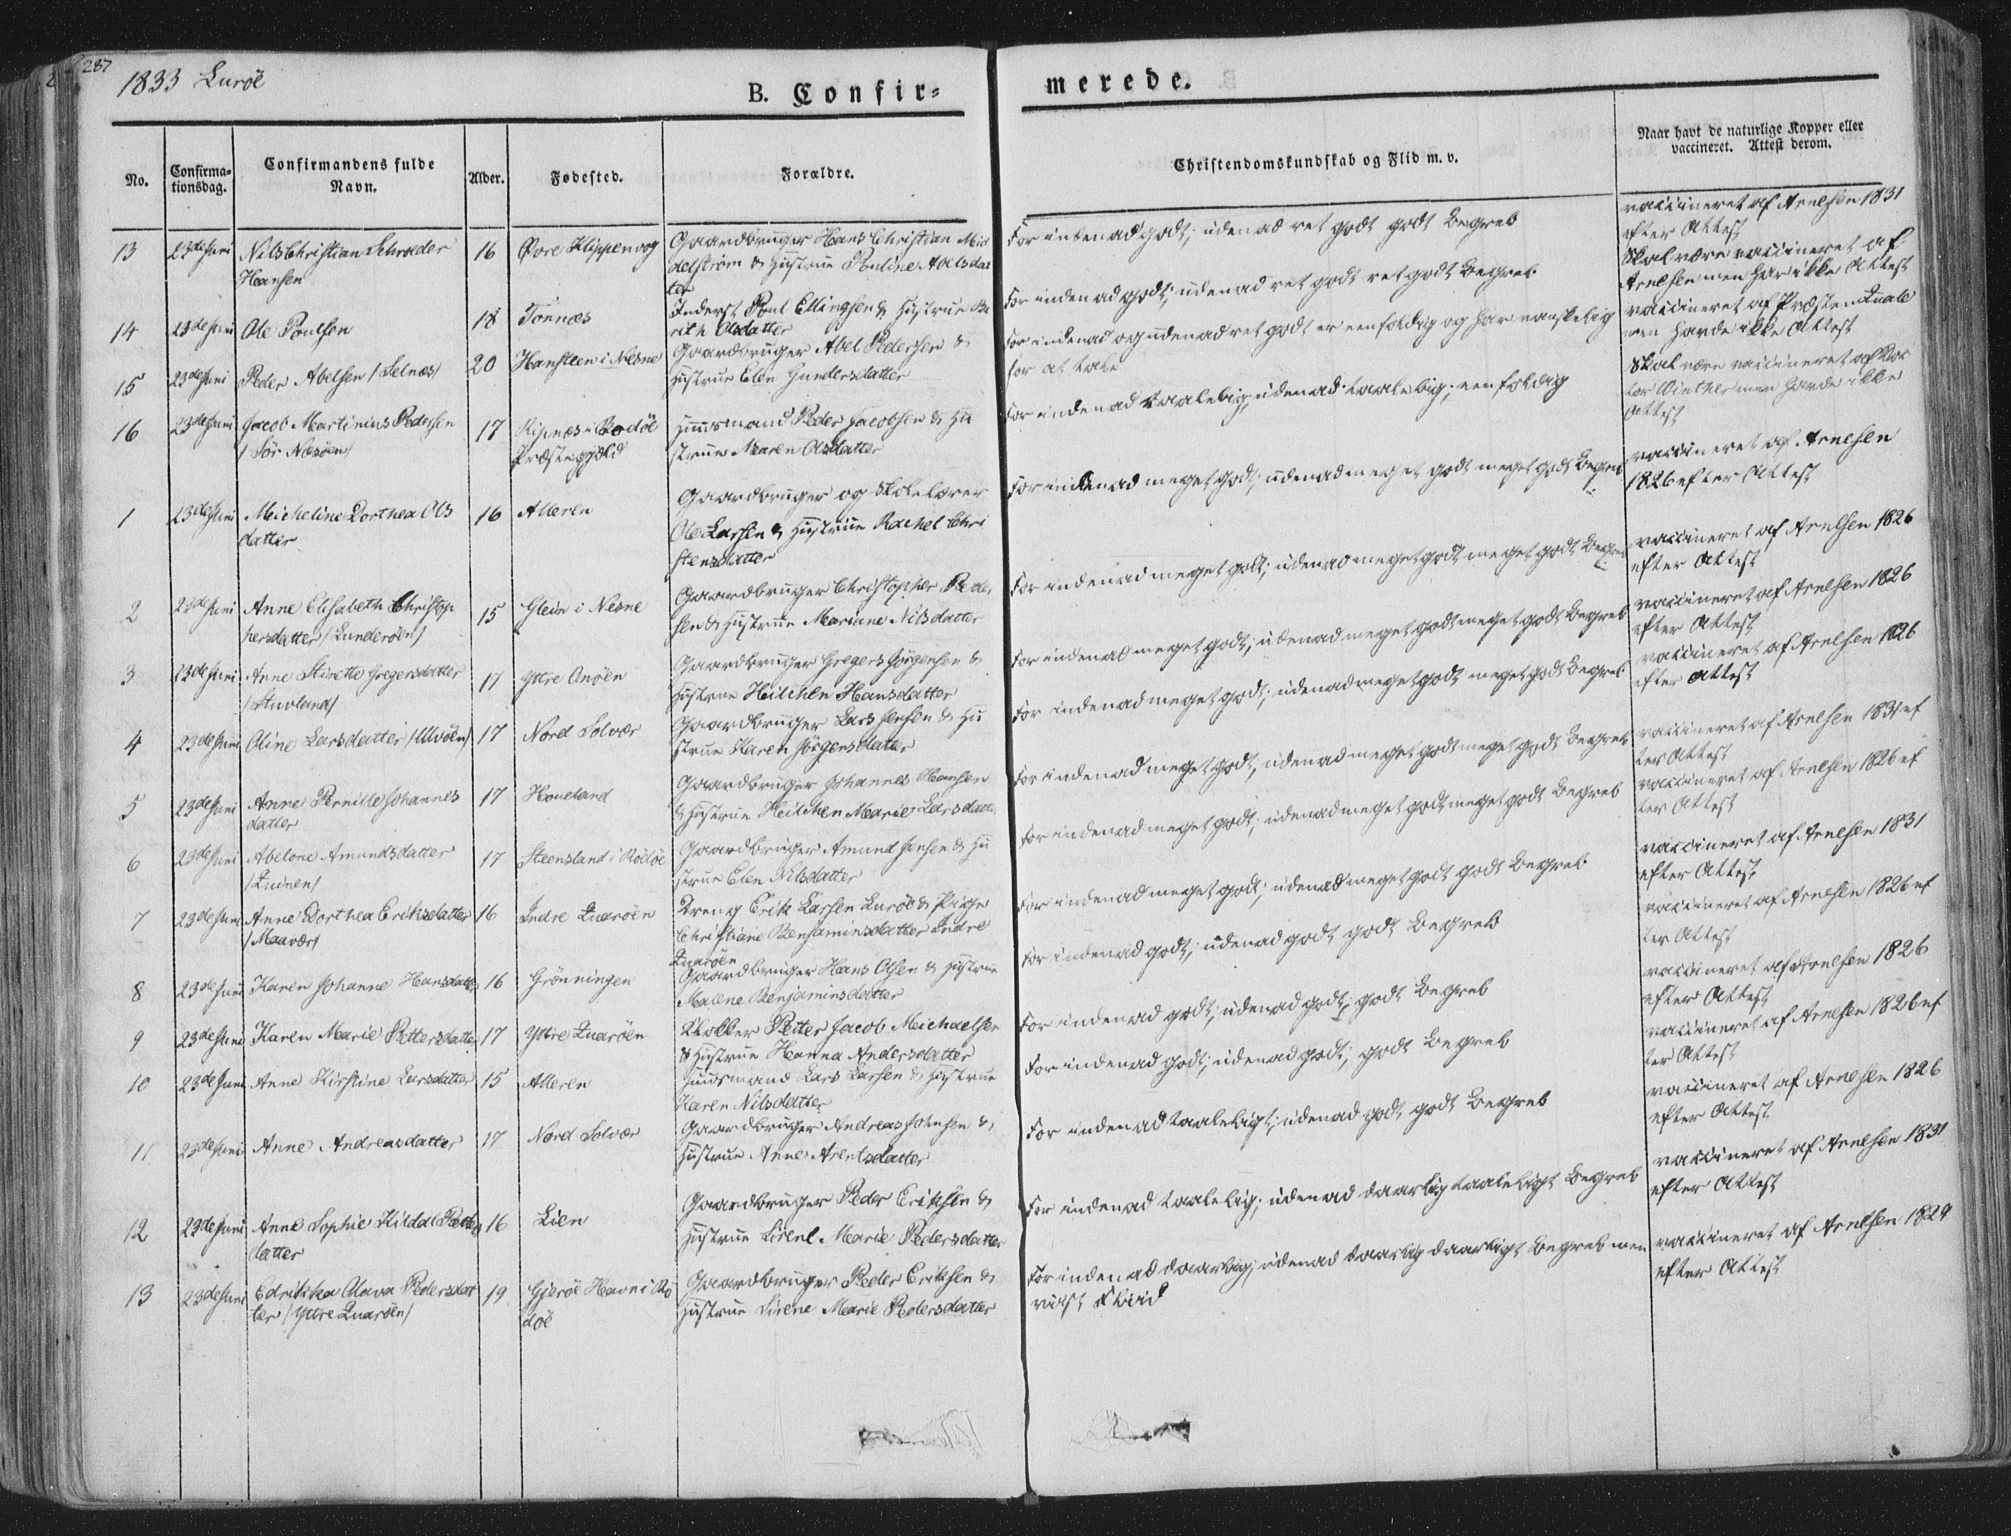 287
1833 Luröe
B. Confir=
merede.
No.
Confirma-
tionsdag.
Confirmandens fulde
Navn.
Alder.
Fødested.
Forældre.
Christendomskundskab og Flid m. v.
Naar havt de naturlige Kopper eller
vaccineret. Attest derom.
13 23de Juni Nils Christian Schrøder 16 Øvre Klippenvog Gaardbruger Hans Christian Mid
Hansen
delström & Hustrue Pauline Abelsdat
ter
For indenad godt; udenad ret godt godt Begreb
vaccineret af Arnelsen 1831
efter Attest
14 23de Juni Ole Poulsen 18 Tonnes Inderst Poul Ellingsen & Hustrue Be
rith Olsdatter
For indenad godt; udenad ret godt ret godt Begreb
Skal være vaccineret af
Arnelsen men har ikke Attest
15 23de Juni Peder Abelsen /Selnæs/ 20 Hansteen i Nesne Gaardbruger Abel Pedersen &
Hustrue Elen Gundersdatter
For indenad og udenad ret godt er eenfoldig og har vanskelig
for at tale
vaccineret af Præsten Quale
men havde ikke Attest
16 23de Juni Jacob Martinius Pedersen 17 Ripnæs i Bodöe Huusmand Peder Jacobsen & Hu
/Sör Næsöen/
Præstegjæld
strue Maren Olsdatter
For indenad taalelig; udenad taalelig; eenfoldig
Skal være vaccineret af Doc
tor Winther men havde ikke
Attest
1 23de Juni Micheline Dorthea Ols 16 Alleren Gaardbruger og Skolelærer
datter
Ole Larsen & Hustrue Rachel Chri
stensdatter
For indenad meget godt; udenad meget godt meget godt Begreb
vaccineret af Arnelsen
1826 efter Attest
2 23de Juni Anne Elisabeth Christop 15 Glein i Nesne Gaardbruger Christopher Peder
hersdatter /Lunderöen/
sen & Hustrue Mariane Nilsdatter
For indenad meget godt; udenad meget godt meget godt Begreb
vaccineret af Arnelsen 1826
efter Attest
3 23de Juni Anne Sirette Gregersdatter 17 Yttre Onöen Gaardbruger Gregers Jörgensen &
/Stuvland/
Hustrue Heilchen Hansdatter
For indenad meget godt; udenad meget godt meget godt Begreb
vaccineret af Arnelsen 1826
efter Attest
4 23de Juni Oline Larsdatter /Ulvöen/ 17 Nord Solvær Gaardbruger Lars Jensen & Hu
strue Karen Jörgensdatter
For indenad meget godt; udenad meget godt meget godt Begreb
vaccineret af Arnelsen 1826
efter Attest
5 23de Juni Anne Pernille Johannes 17 Houeland Gaardbruger Johannes Hansen
datter
& Hustrue Heilchen Marie Larsdatter
For indenad meget godt; udenad meget godt meget godt Begreb
vaccineret af Arnelsen 1831 ef
ter Attest
6 23de Juni Abelone Amundsdatter 17 Steensland i Rödöe Gaardbruger Amund Jensen & Hu
strue Elen Nilsdatter
For indenad meget godt; udenad meget godt meget godt Begreb
vaccineret af Arnelsen 1826 ef
ter Attest
7 23de Juni Anne Dorthea Eriksdatter 16 Indre Quaröen Dreng Erik Larsen Luröe & Pige
/Maavær/
Christiane Benjaminsdatter Indre
Quaröen
For indenad meget godt; udenad meget godt godt Begreb
vaccineret af Arnelsen 1831
efter Attest
8 23de Juni Karen Johanne Hansdatter 16 Grönningen Gaardbruger Hans Olsen & Hustrue
Malene Benjaminsdatter
For indenad godt; udenad godt godt Begreb
vaccineret af Arnelsen 1826 ef
ter Attest
9 23de Juni Karen Marie Pettersdatter 17 Yttre Quaröen Klokker Petter Jacob Meichaelsen
& Hustrue Hanna Andersdatter
For indenad godt; udenad godt; godt Begreb
vaccineret af Arnelsen 1826
efter Attest
10 23de Juni Anne Kirstine Larsdatter 15 Alleren Huusmand Lars Larsen & Hustrue
Karen Nilsdatter
For indenad godt; udenad godt; godt Begreb
vaccineret af Arnelsen 1826 ef
ter Attest
11 23de Juni Anne Andreasdatter 17 Nord Solvær Gaardbruger Andreas Johnsen &
Hustrue Anne Arentsdatter
For indenad taaleligt; udenad godt godt Begreb
vaccineret af Arnelsen 1826
efter Attest
12 23de Juni Anne Sophie Hilda Peders 16 Lien Gaardbruger Peder Eriksen &
datter
Hustrue Sirene Marie Pedersdatter
For indenad taalelig; udenad daarlig taaleligt Begreb
vaccineret af Arnelsen 1831
efter Attest
13 23de Juni Edrikka Olava Pedersdat 19 Gjeröe Havn i Rö Gaardbruger Peder Eriksen &
ter /Yttre Quaröen/
döe
Hustrue Sirene Marie Pedersdatter
For indenad daarlig; udenad daarlig daarligt Begreb men
viist Fliid
vaccineret af Arnelsen 1829
efter Attest